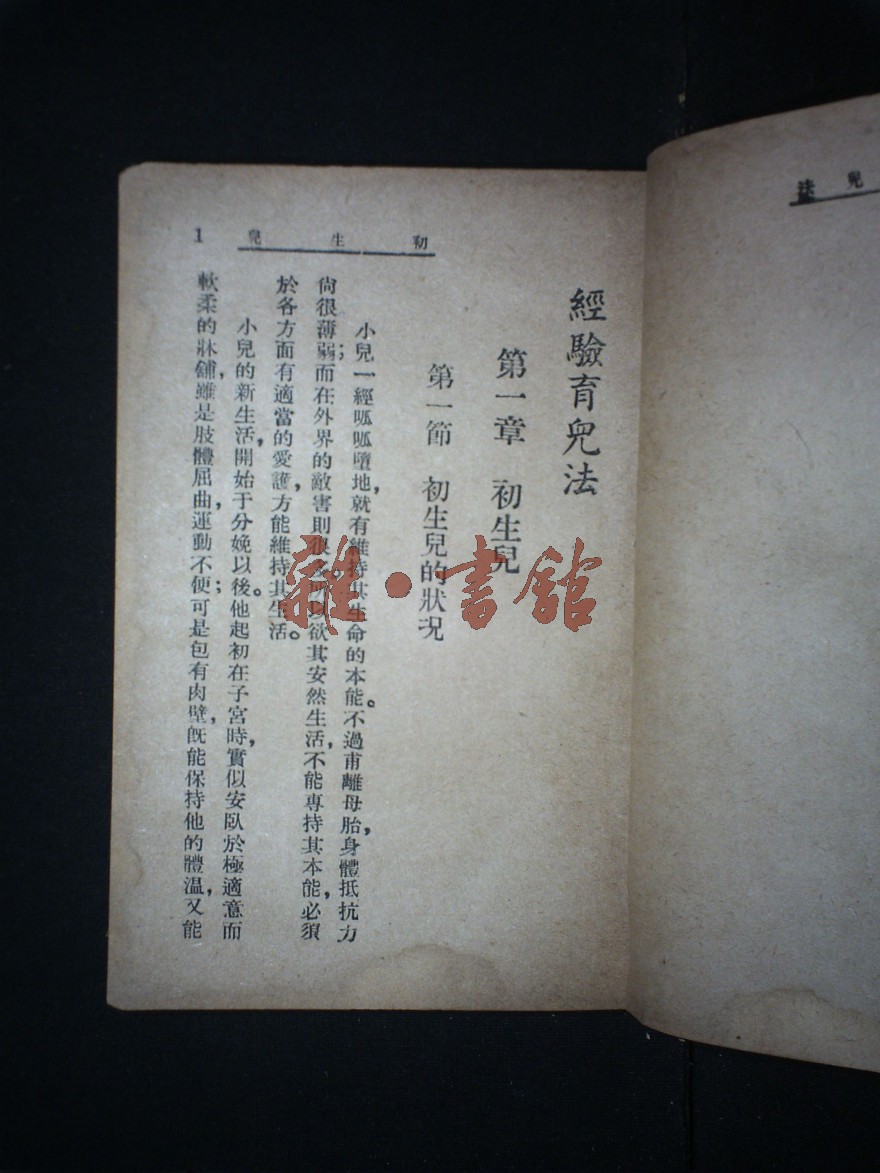 兒法
初生兒 1
經驗育兒法
第一章 初生兒
第一節 初生兒的狀況
小兒一經呱呱墮地,就有維持其生命的本能。不過甫離母胎,身體抵抗力
尙很薄弱;而在外界的敵害則很以欲其安然生活,不能專持其本能,必須
於各方面有適當的愛護,方能維持其生活。
小兒的新生活,開始于分娩以後。他起初在子宮時,實似安臥於極適意而
軟柔的牀鋪,雖是肢體屈曲,運動不便;可是包有肉壁,旣能保持他的體温,又能
雜·書館